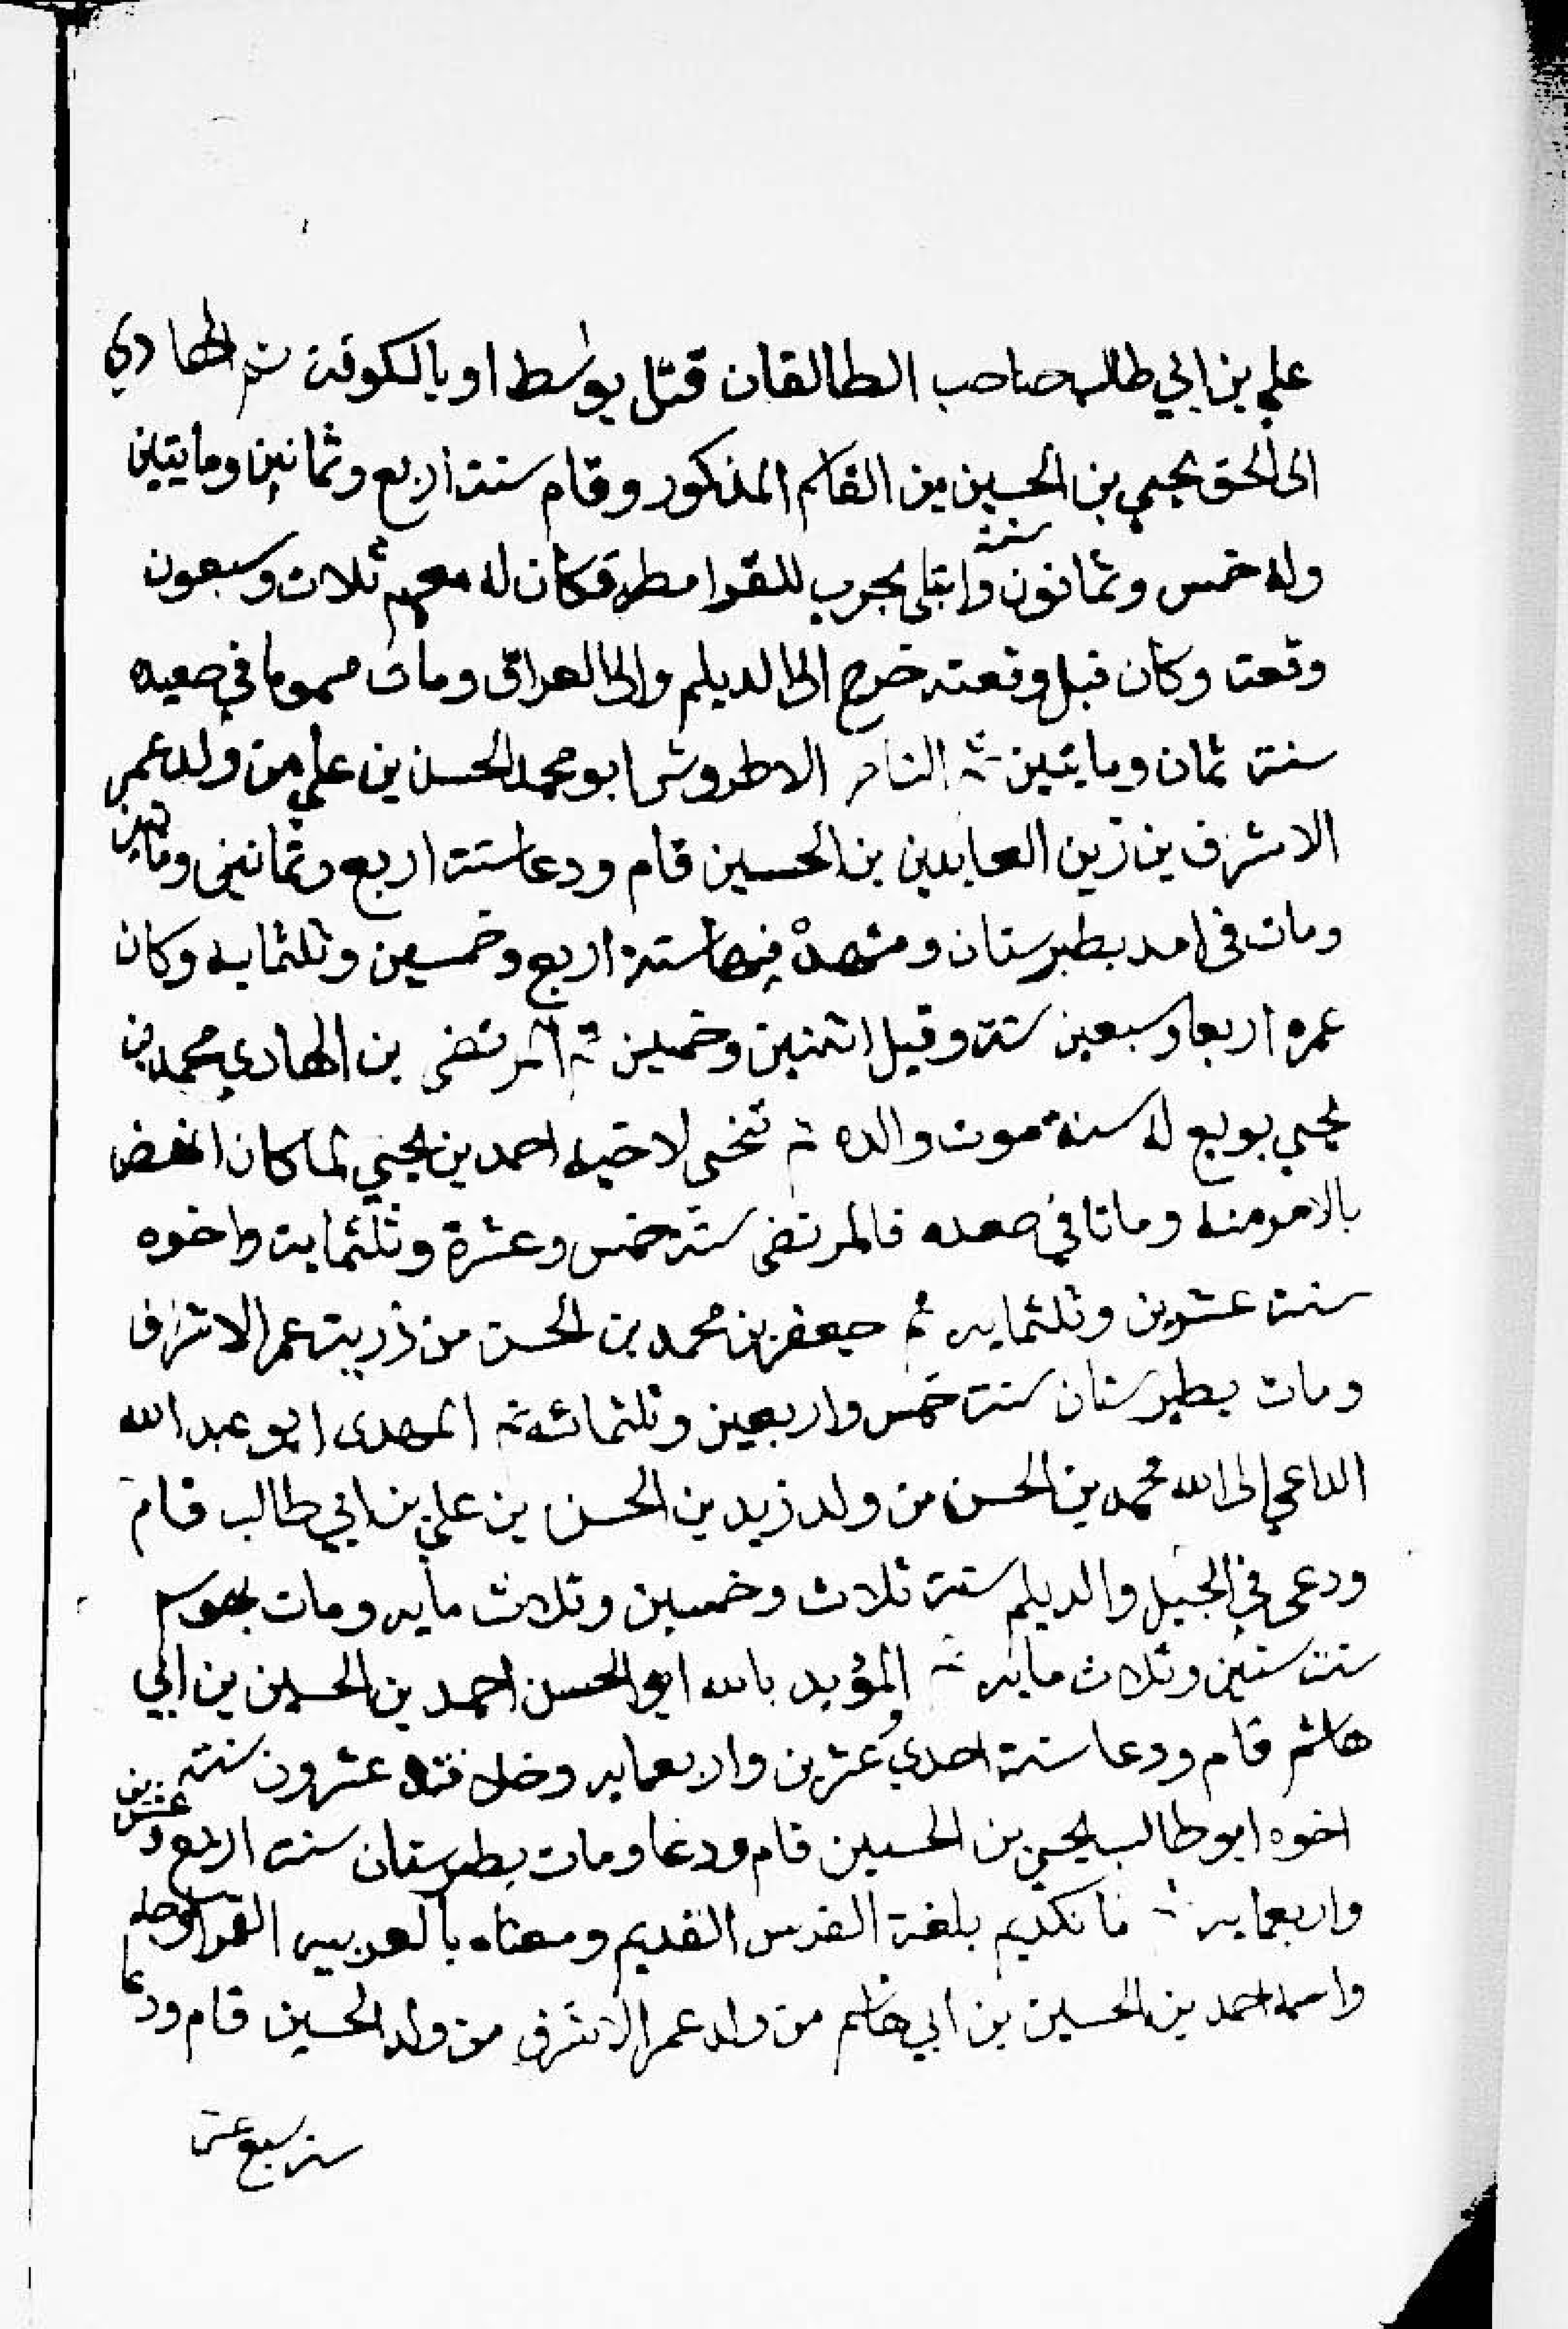 علي بن ابي طالب صاحب الطالقان قتل بواسط او بالكوفة ثم الهادي
الى الحق يحيى بن الحسين بن القاسم المذكور وقام سنة اربع وثمانين ومايتين
وله خمس وثمانون سنة وابتلي بحرب للقرامطه فكان له معهم ثلاث وسبعون
وقعت وكان قبل وقعته خرج الى الديلم والى العراق ومات مسموما في صعيده
سنة ثمان ومايتين ثم الناصر الاطروش ابو محمد الحسن بن علي من ولد عمر
الاشرف بن زين العابدين بن الحسين قام ودعا سنت اربع وثمانين ومايتين
ومات في امد بطبرستان ومشهده فيها سنة اربع وخمسين وثلثمايه وكان
عمره اربعا وسبعين سنة وقيل اثنين وخمسين ثم المرتضى بن الهادي محمد بن
يحيى بويع له سنة موت والده ثم تنحى لاخيه احمد بن يحيى لما كان انهض
بالامر منه وماتا في صعده فالمرتضى سنة خمس وعشرة وثلثماية واخوه
سنت عشرين وثلثمايه ثم جعفر بن محمد بن الحسن من ذرية عمر الاشرف
ومات بطبرستان سنت خمس واربعين وثلثمائة ثم المهدى ابو عبد الله
الداعي الى الله محمد بن الحسن من ولد زيد بن الحسن بن علي بن ابي طالب قام
ودعى في الجيل والديلم سنة ثلاث وخمسين وثلاث مايه ومات بهوسم
سنت ستين وثلاث مايه ثم المؤيد بالله ابو الحسن احمد بن الحسين بن ابي
هاشم قام ودعا سنة احدي وعشرين واربعمايه عشرون سنة ثم
اخوه ابو طالب يحيى بن الحسين قام ودعا ومات بطبرستان سنت اربع وعشرين
واربعمايه ثم مانكديم بلغة الفرس القديم ومعناه بالعربيه القمر
واسمه احمد بن الحسين بن ابي هاشم من ولد عمر الاشرف من ولد الحسين قام ودعا
سنة سبع عشر